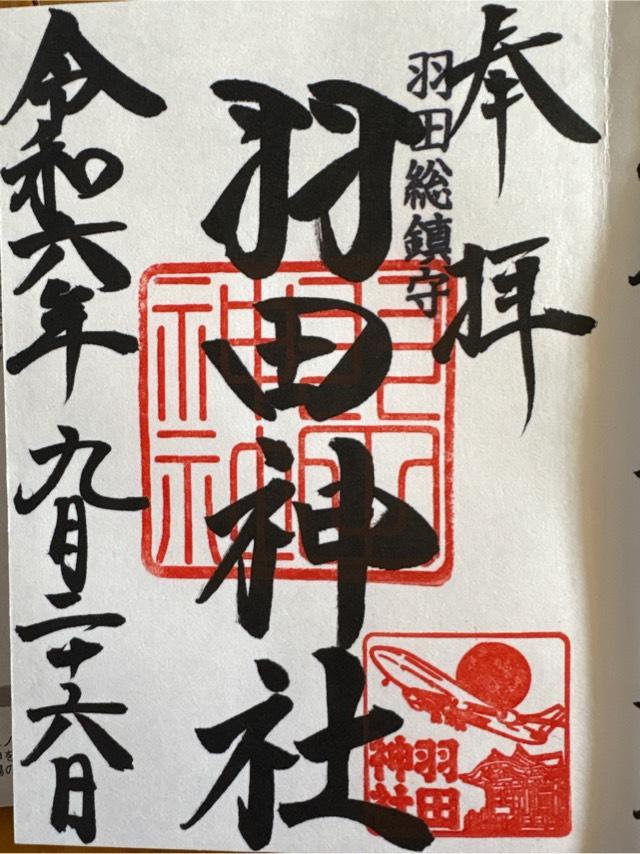 奉拝
羽田総鎮守
羽田神社
令和六年 九月二十六日
羽田
神社